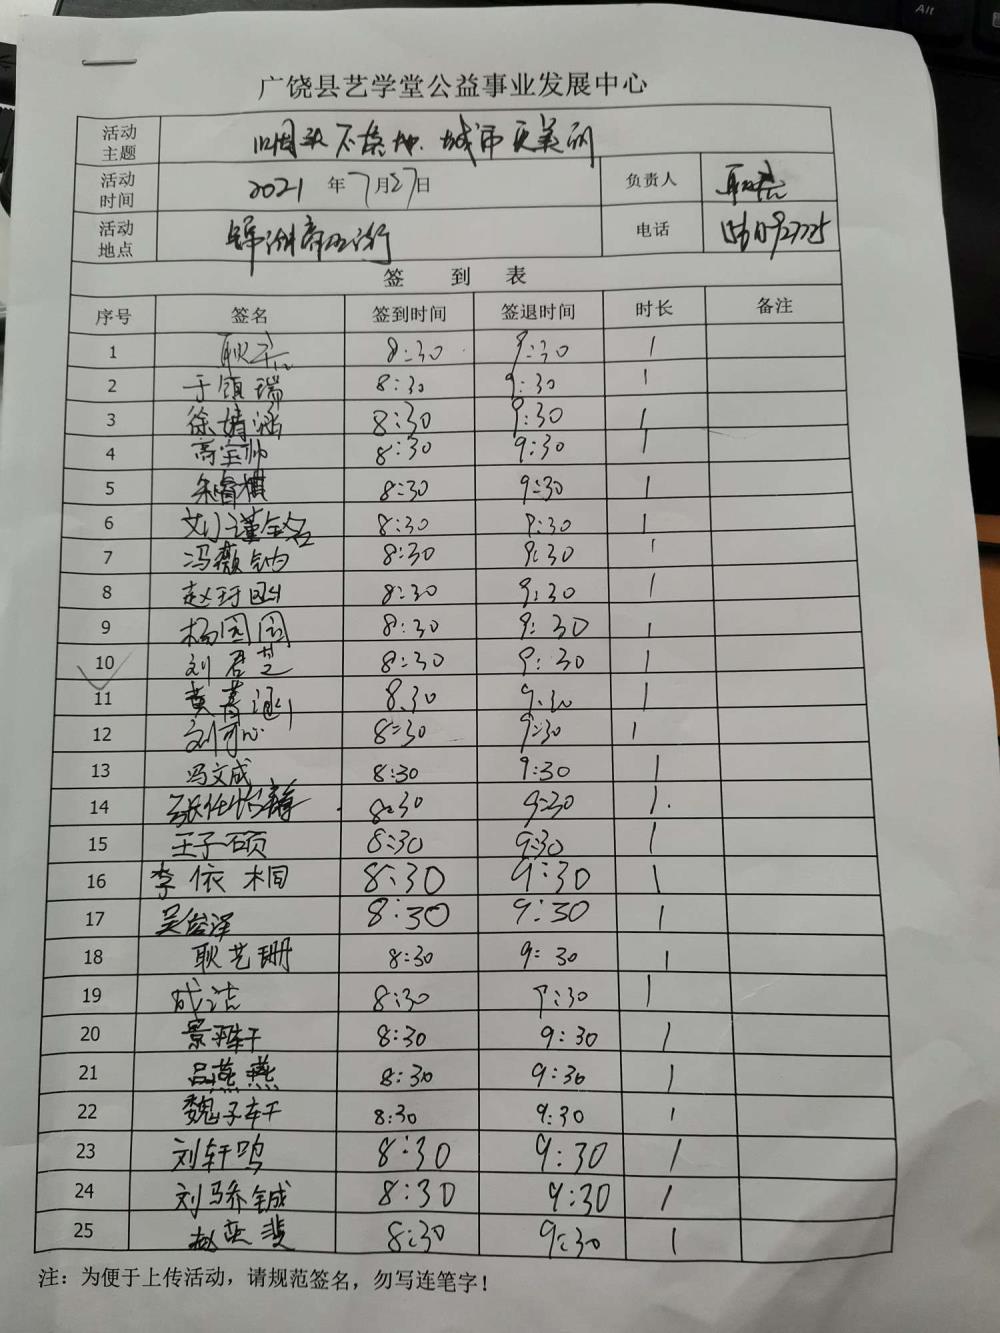 Alt
广饶县艺学堂公益事业发展中心
活动主题 烟头不落地 城市更美丽
活动时间 2021年7月27日 负责人
活动地点 电话
签到表
序号 签名 签到时间 签退时间 时长 备注
1 8:30 9:30 1
2 于领瑞 8:30 9:30 1
3 徐婧涵 8:30 9:30 1
4 高宝帅 8:30 9:30 1
5 朱睿棋 8:30 9:30 1
6 8:30 9:30 1
7 冯薇钠 8:30 9:30 1
8 8:30 9:30 1
9 杨园园 8:30 9:30 1
10 刘君芝 8:30 9:30 1
11 黄菁涵 8:30 9:30 1
12 刘可心 8:30 9:30 1
13 冯文成 8:30 9:30 1
14 8:30 9:30 1
15 王子硕 8:30 9:30 1
16 李依桐 8:30 9:30 1
17 吴俊泽 8:30 9:30 1
18 耿艺珊 8:30 9:30 1
19 成洁 8:30 9:30 1
20 8:30 9:30 1
21 吕燕燕 8:30 9:30 1
22 魏子轩 8:30 9:30 1
23 刘轩鸣 8:30 9:30 1
24 刘骄铖 8:30 9:30 1
25 赵奕斐 8:30 9:30 1
注：为便于上传活动，请规范签名，勿写连笔字！